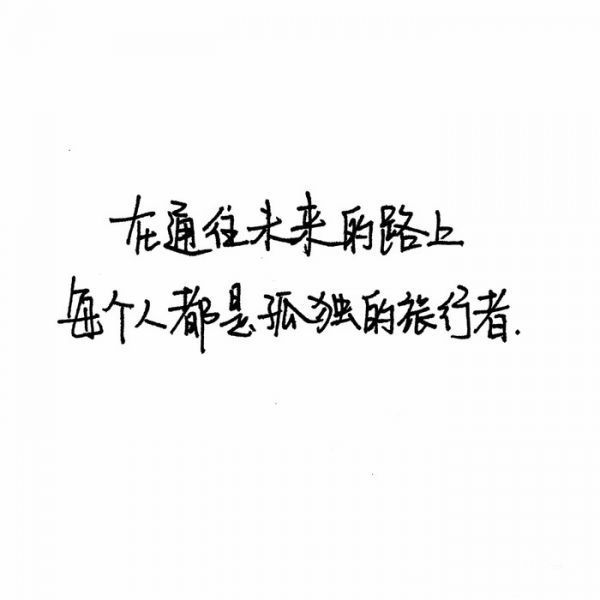 在通往未来的路上
每个人都是孤独的旅行者.